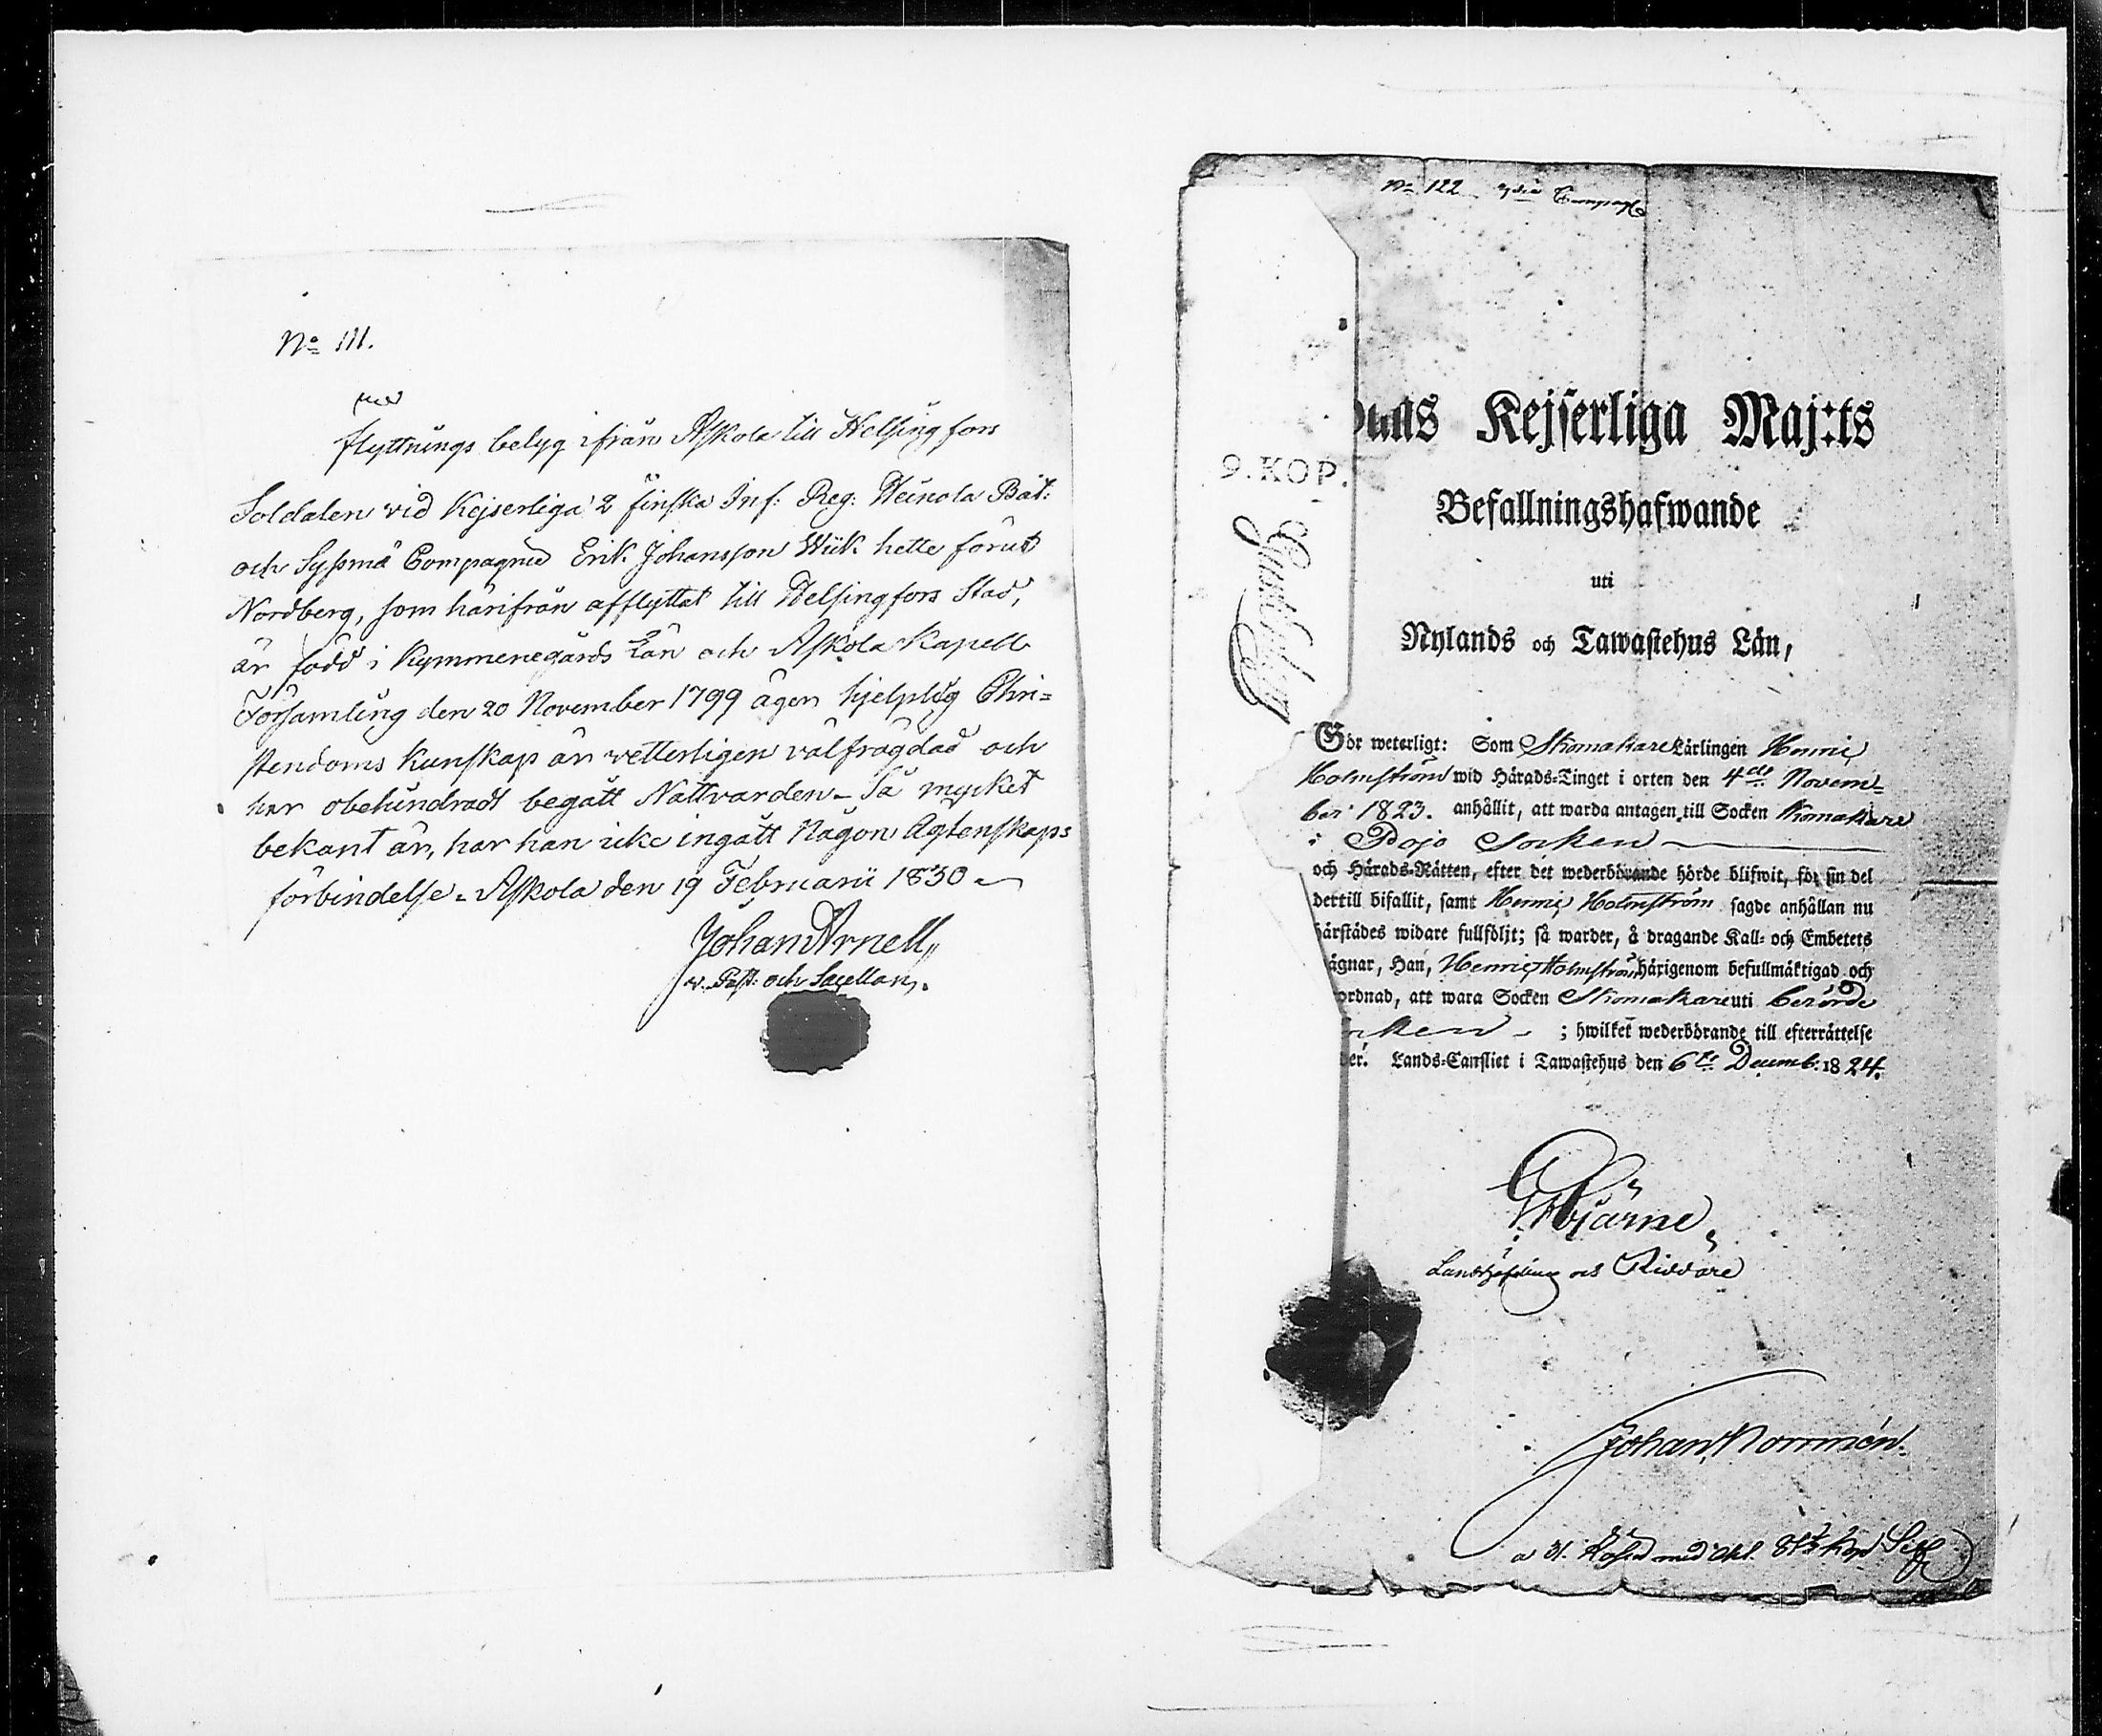 No 111.
flyttnings belyg ifrån Askola till Helsingfors
Soldaten vid Kejserliga 2 finska Inf: Reg: Heinola Bat:
och Sysmä Compagnie Erik Johansson Wiik hette förut
Nordberg, som härifrån afflyttat till Helsingfors Stad,
är född i Kymmenegårds Län och Askola Kapell
Församling den 20 November 1799 äger hjelplig Chri=
stendoms kunskap är vetterligen välfrägdad och
har obehindradt begått Nattvarden – Så mycket
bekant är, har han icke ingått någon Agtenskaps
förbindelse. Askola den 19 Februarii 1830
Johan Arnell
v. Past: och Sacellan.
No 122
9. KOP.
Kejserliga Maj:ts
Befallningshafwande
uti
Nylands och Tawastehus Län,
Gör weterligt: Som Skomakare Lärlingen Henric
Holmström wid Härads-Tinget i orten den 4de Novem=
ber 1823. anhållit, att warda antagen till Socken Skomakare
i Pojo Socken
och Härads-Rätten, efter det wederbörande hörde blifwit, för sin del
dertill bifallit, samt Henric Holmström sagde anhållan nu
härstädes widare fullföljt; så warder, å dragande Kall- och Embetets
wägnar, Han, Henric Holmström härigenom befullmäktigad och
ordnad, att wara Socken Skomakare uti berörde
cken ; hwilket wederbörande till efterrättelse
der. Lands-Cansliet i Tawastehus den 6te Decemb: 1824.
G Hjärne
Landshöfding och Riddare
Johan Nommén.